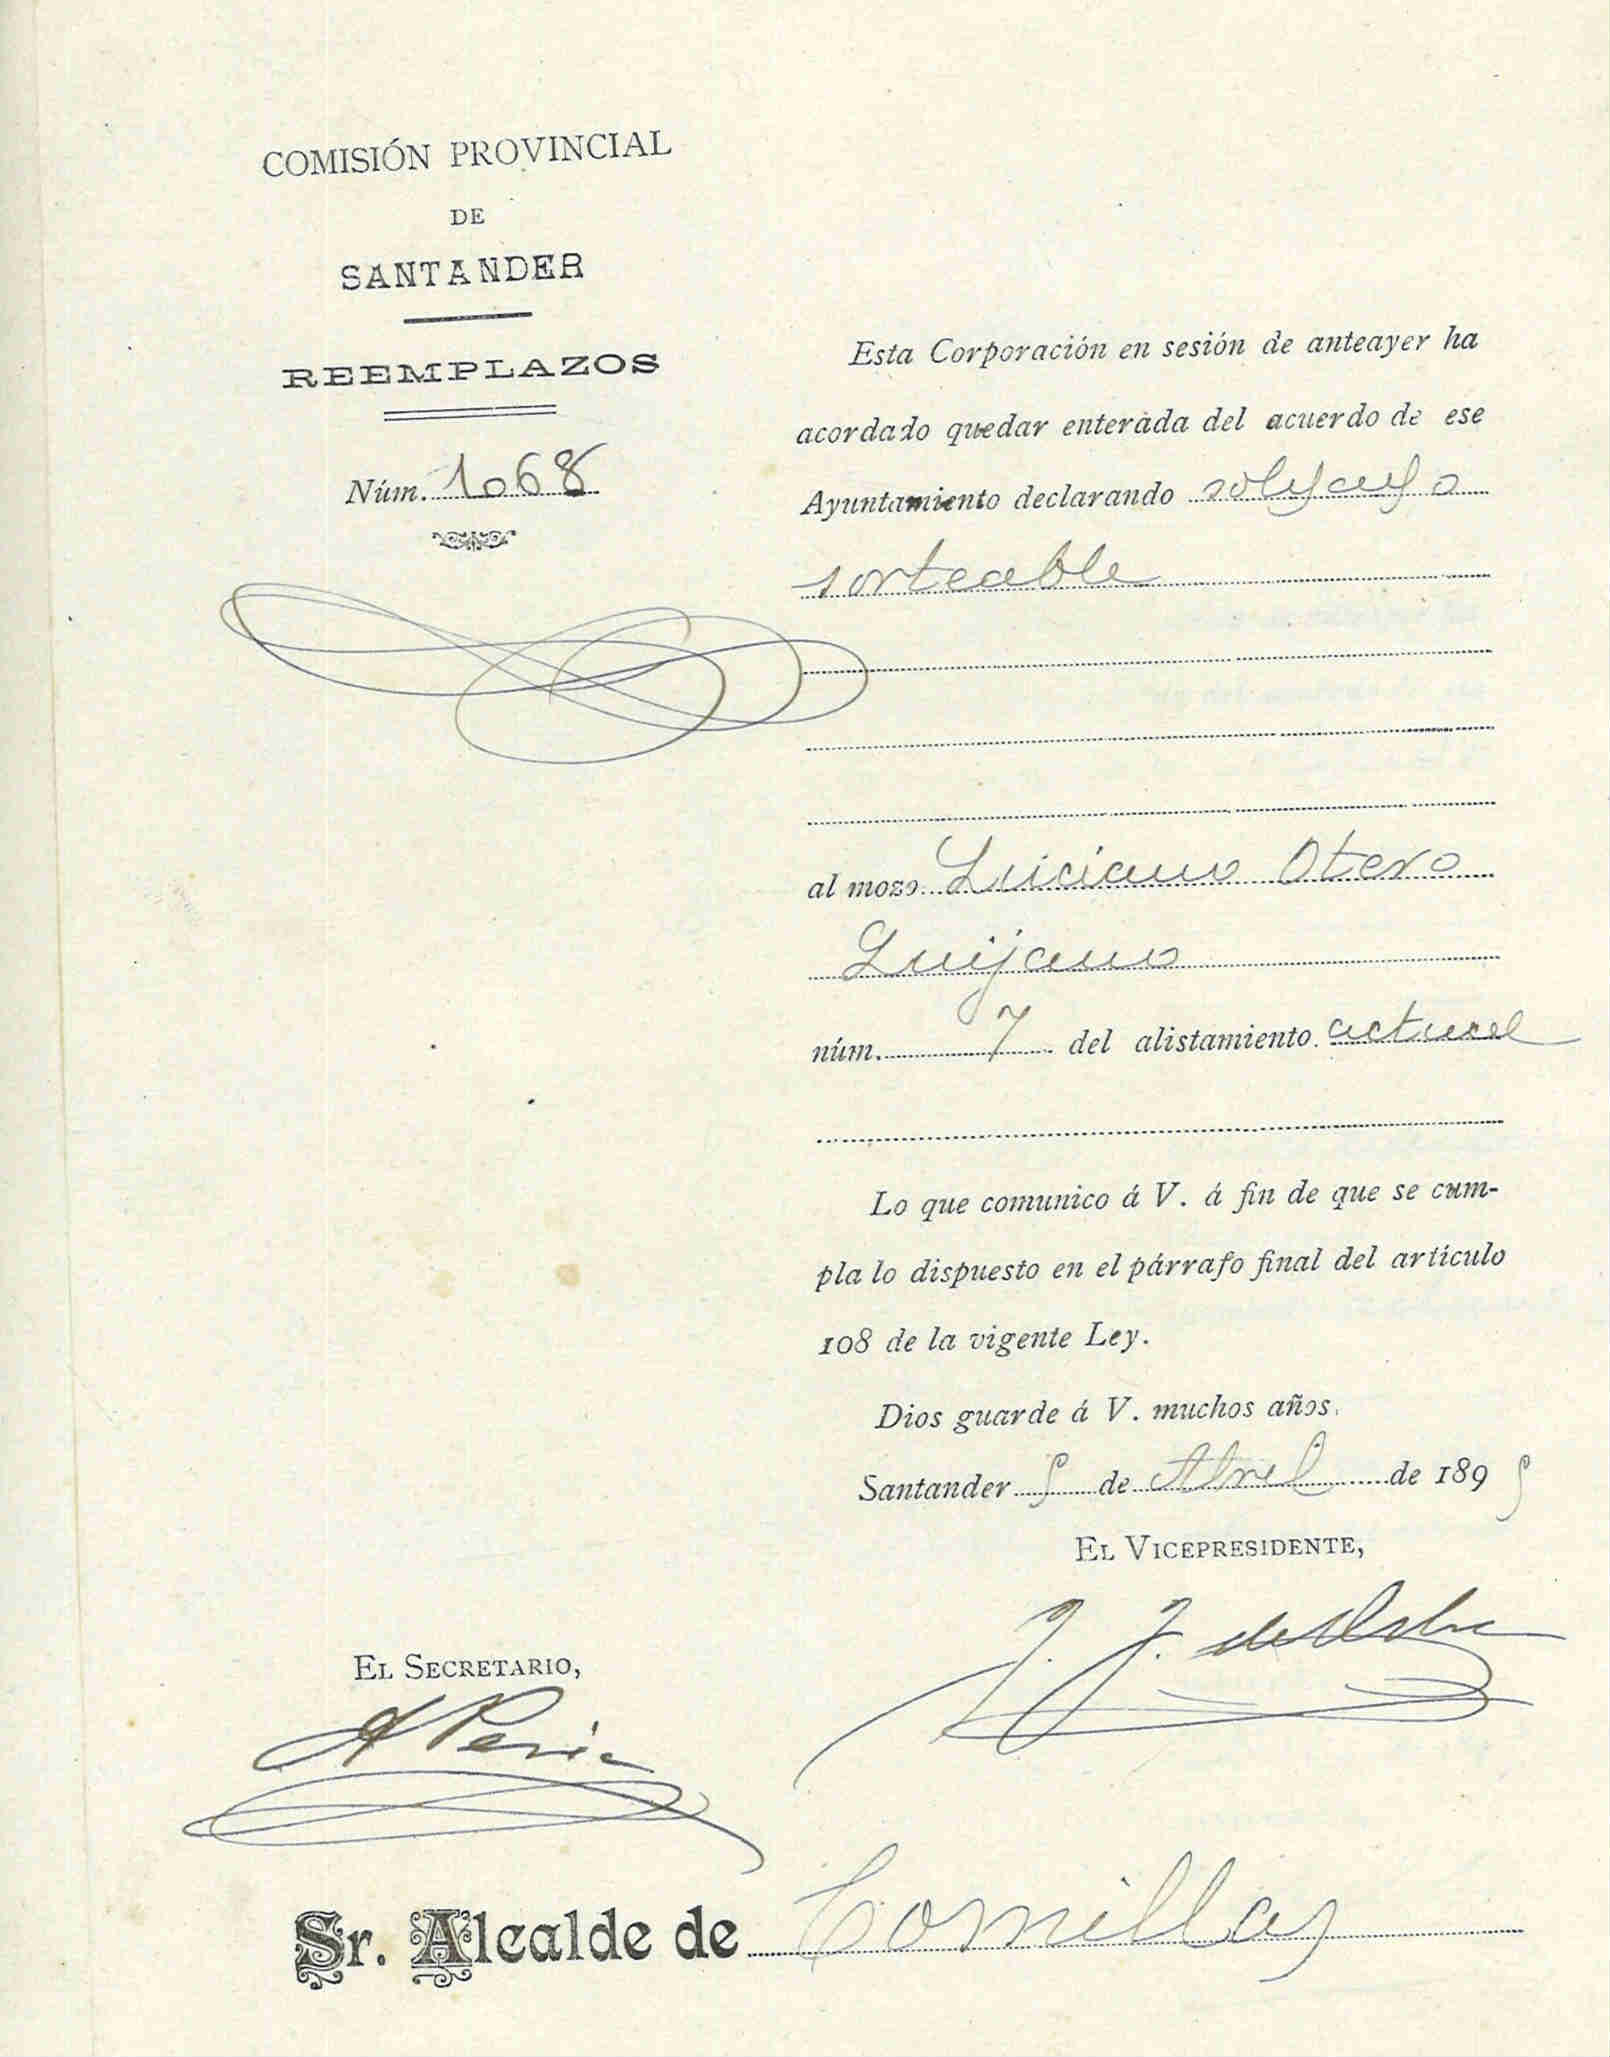 COMISIÓN PROVINCIAL
DE
SANTANDER
REEMPLAZOS
Núm. 1068
Esta Corporación en sesión de anteayer ha
acordado quedar enterada del acuerdo de ese
Ayuntamiento declarando soldado
sorteable
al mozo Luciano Otero
Quijano
núm. 7 del alistamiento actual
Lo que comunico á V. á fin de que se cum-
pla lo dispuesto en el párrafo final del artículo
108 de la vigente Ley.
Dios guarde á V. muchos años.
Santander 5 de Abril de 1895
EL VICEPRESIDENTE,
J. J. de
EL SECRETARIO,
A
Sr. Alcalde de Comillas